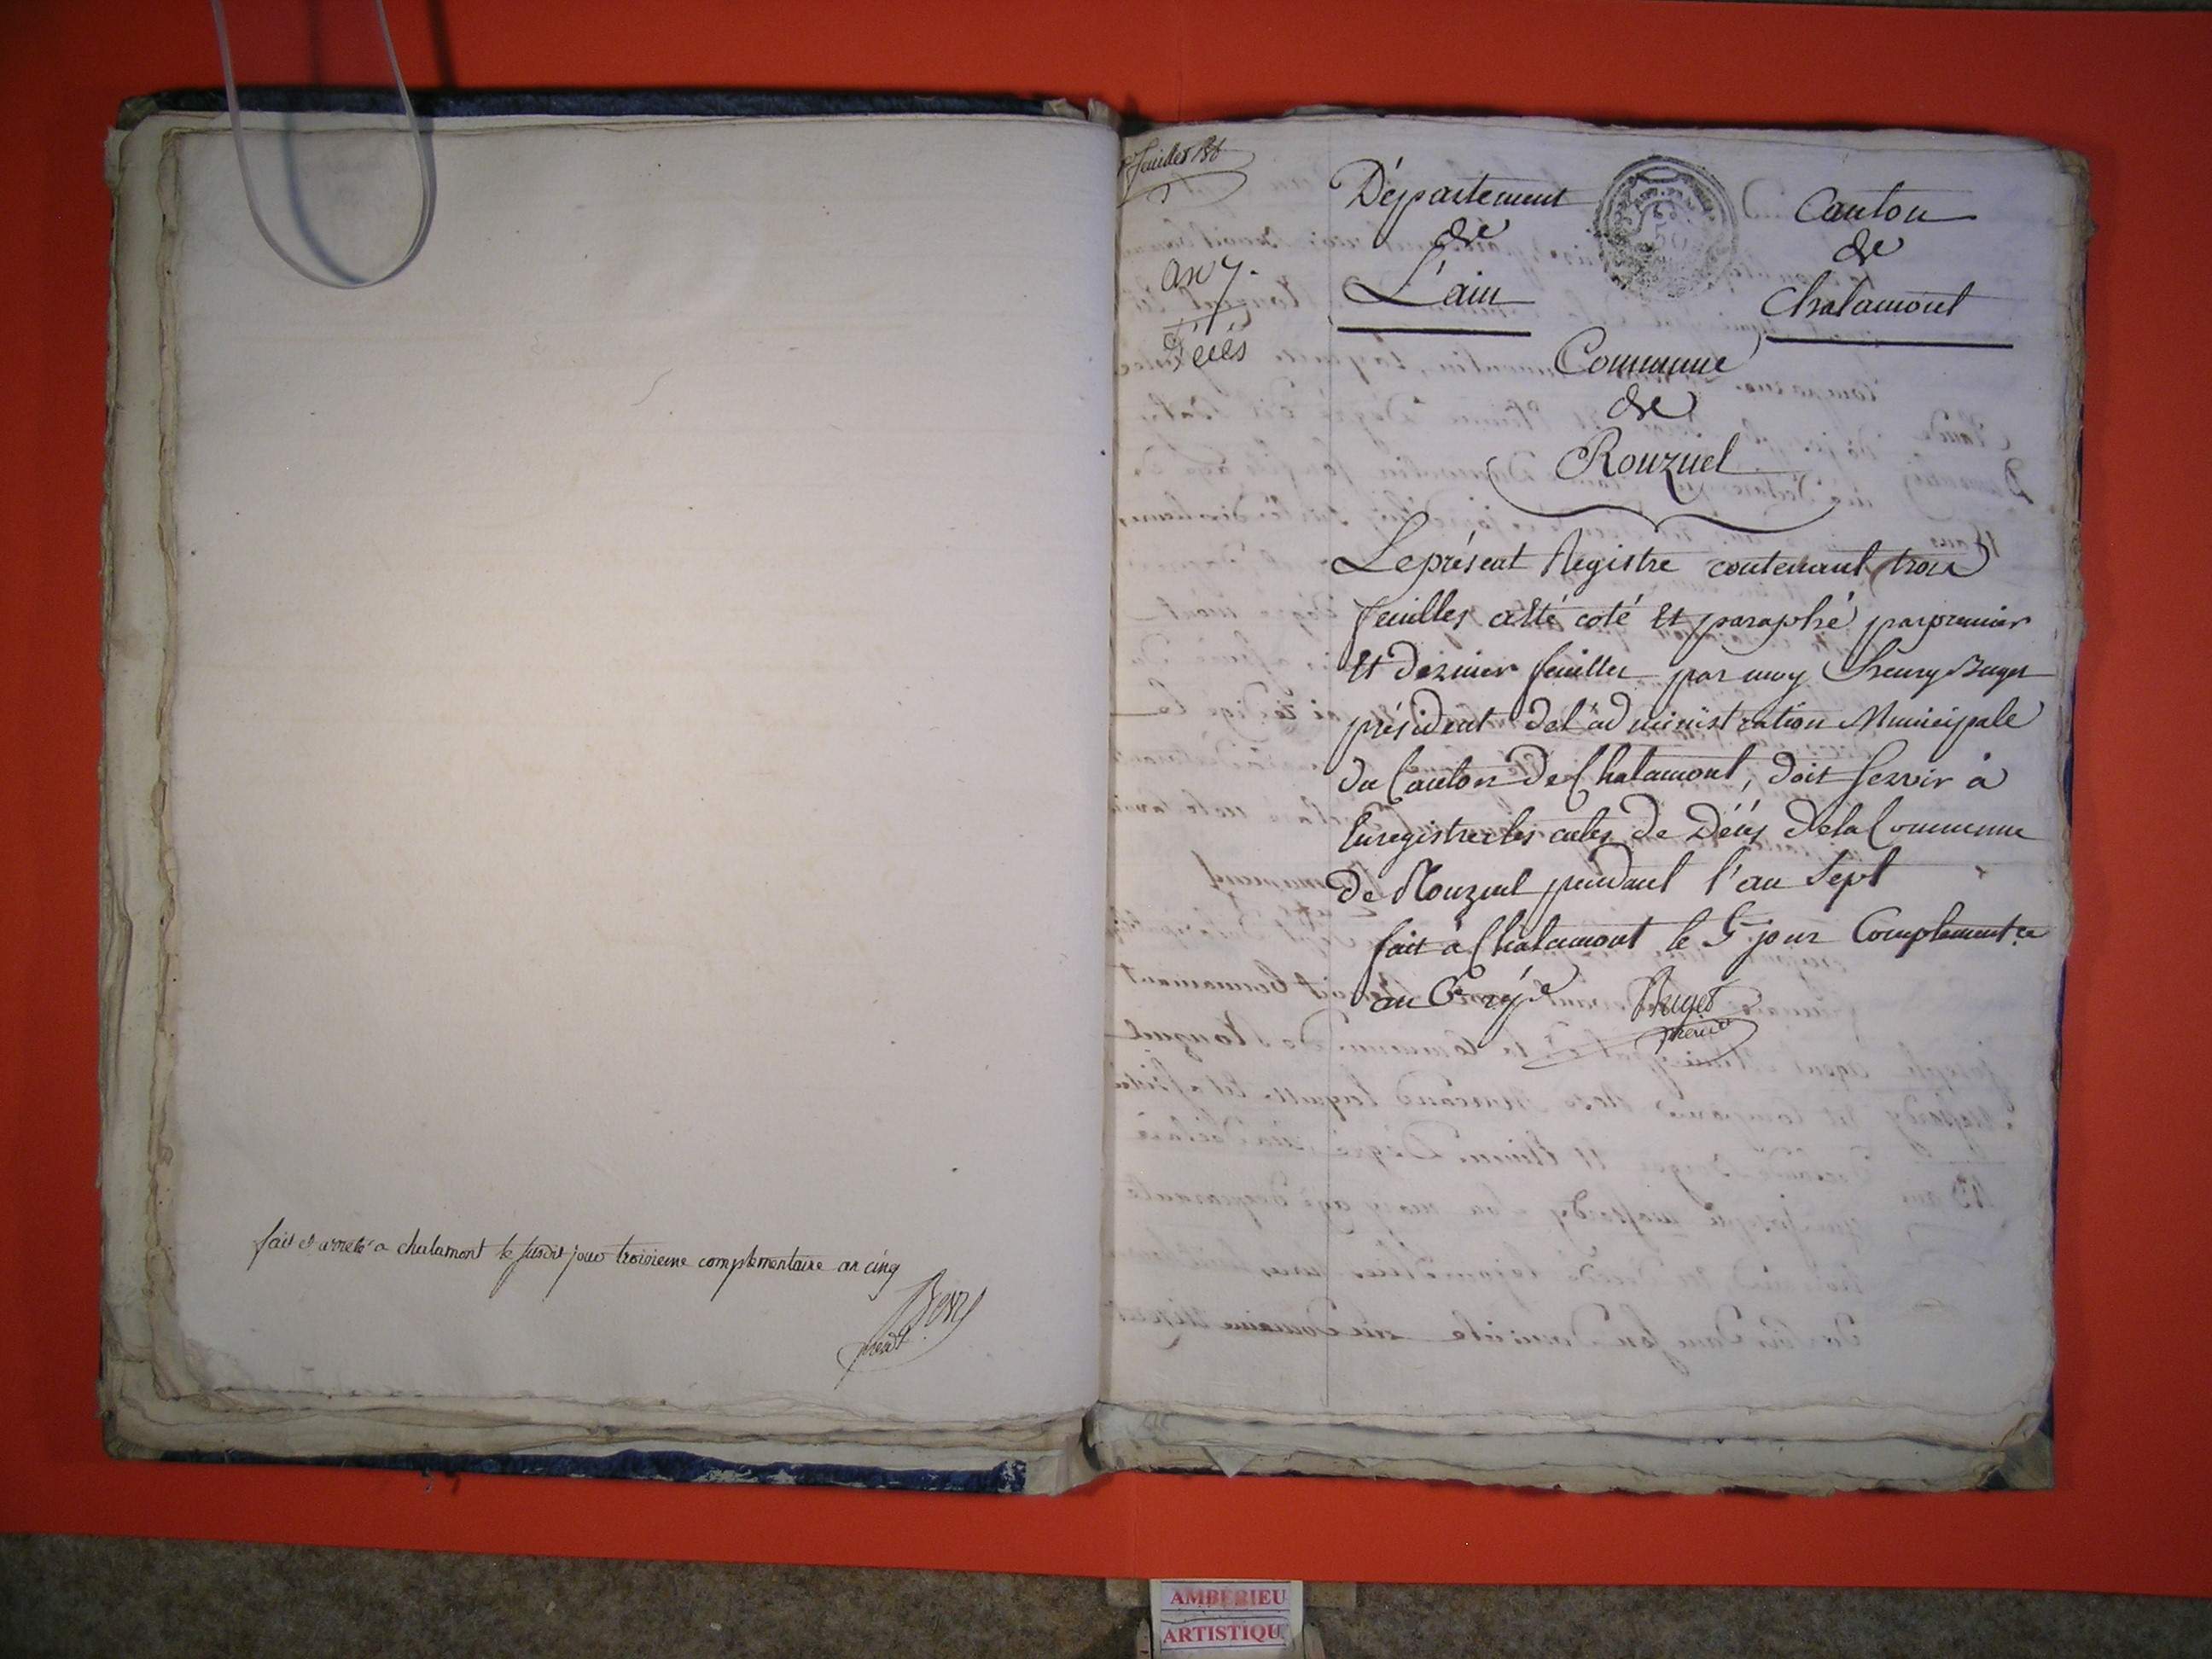 fait et arreté a chalamont le susdit jour troisieme complementaire an cinq
présdt
1er feuillet
an 7.
Décés
Département
de
L'ain
Canton
de
Chalamont
Commune
de
Rouzuel
Le présent Registre contenant trois
feuilles a été coté Et paraphé par premier
Et dernier feuillet par moy henry Buget
président de l'administration Municipale
du Canton de Chalamont, doit servir à
Enregistrer les actes de Décés de la Commune
de Rouzuel pendant l'an Sept
fait à Chalamont le 5e jour Complementre
an 6e
Buget
AMBERIEU
ARTISTIQU